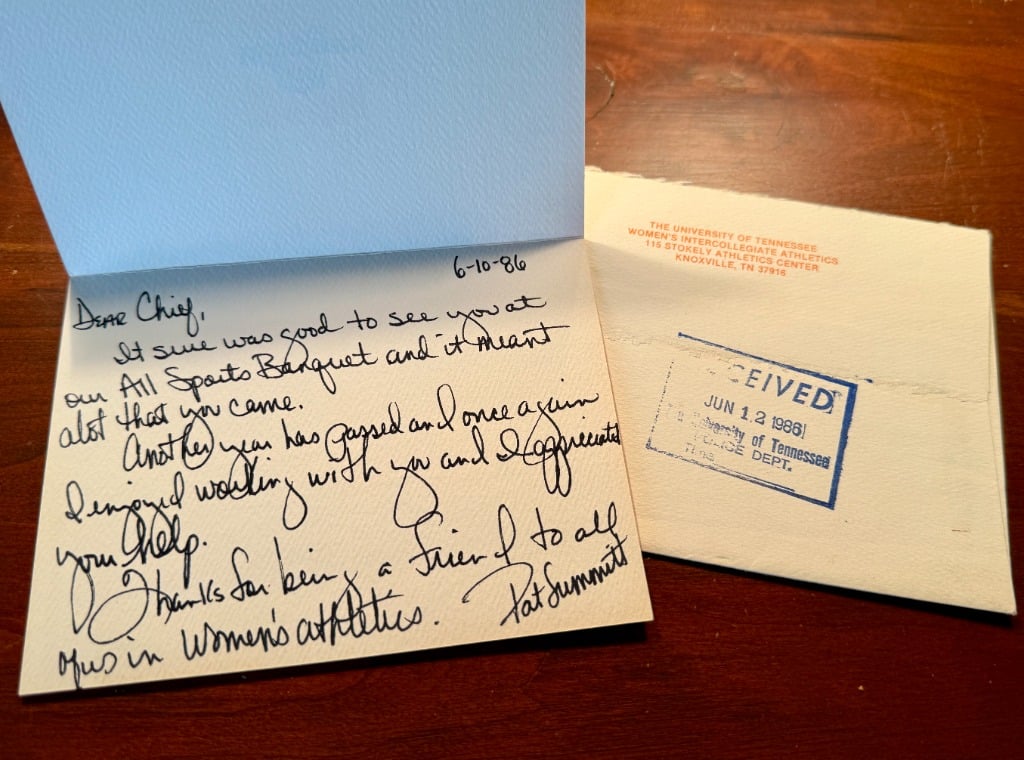 6-10-86
Dear Chief,
It sure was good to see you at
our All Sports Banquet and it meant
alot that you came.
Another year has passed and once again
I enjoyed working with you and I appreciate
your help.
Thanks for being a friend to all
of us in Women's athletics.
Pat Summitt
THE UNIVERSITY OF TENNESSEE
WOMEN'S INTERCOLLEGIATE ATHLETICS
115 STOKELY ATHLETICS CENTER
KNOXVILLE, TN 37916
CEIVED
JUN 12 1986
University of Tennessed
POLICE DEPT.